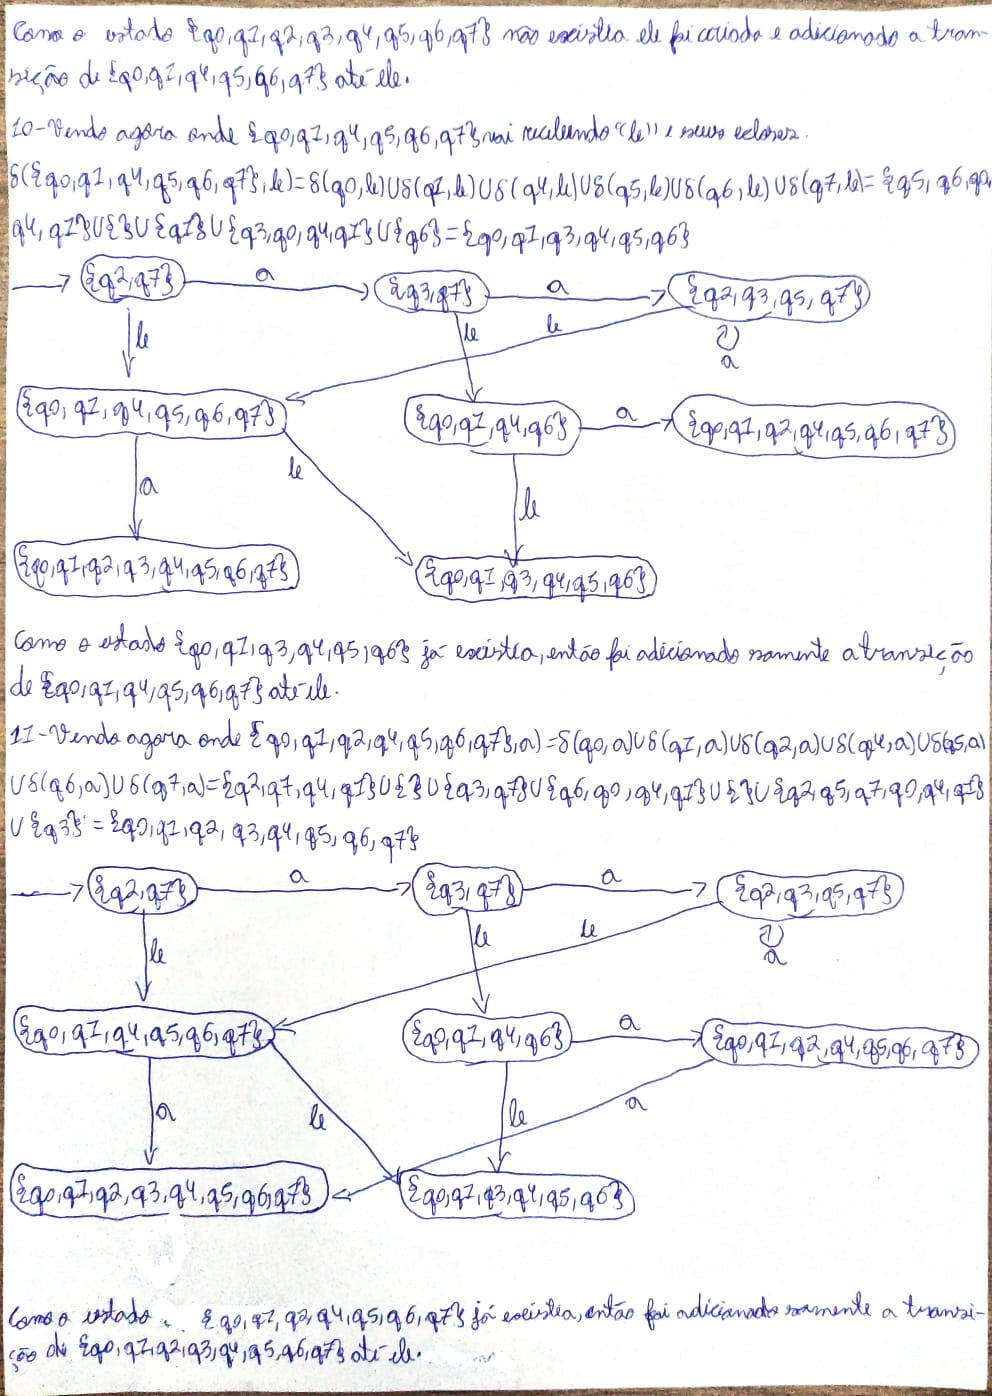 Como o estado {q0,q1,q2,q3,q4,q5,q6,q7} não existia ele foi criado e adicionado a tran-
sição de {q0,q1,q4,q5,q6,q7} até ele.
10-Vendo agora onde {q0,q1,q4,q5,q6,q7} vai recebendo "b" e seus ecloses.
δ({q0,q1,q4,q5,q6,q7},b)=δ(q0,b)Uδ(q1,b)Uδ(q4,b)Uδ(q5,b)Uδ(q6,b)Uδ(q7,b)={q5,q6,q0,
q4,q1}U{}U{q1}U{q3,q0,q4,q1}U{q6}={q0,q1,q3,q4,q5,q6}
{q2,q7} a {q3,q7} a {q2,q3,q5,q7}
b b b a
{q0,q1,q4,q5,q6,q7} {q0,q1,q4,q6} a {q0,q1,q2,q4,q5,q6,q7}
a b b
{q0,q1,q2,q3,q4,q5,q6,q7} {q0,q1,q3,q4,q5,q6}
Como o estado {q0,q1,q3,q4,q5,q6} já existia, então foi adicionado somente a transição
de {q0,q1,q4,q5,q6,q7} até ele.
11-Vendo agora onde {q0,q1,q2,q4,q5,q6,q7},a)=δ(q0,a)Uδ(q1,a)Uδ(q2,a)Uδ(q4,a)Uδ(q5,a)
Uδ(q6,a)Uδ(q7,a)={q2,q7,q4,q1}U{}U{q3,q7}U{q6,q0,q4,q1}U{}U{q2,q5,q7,q0,q4,q1}
U{q3}={q0,q1,q2,q3,q4,q5,q6,q7}
{q2,q7} a {q3,q7} a {q2,q3,q5,q7}
b b b a
{q0,q1,q4,q5,q6,q7} {q0,q1,q4,q6} a {q0,q1,q2,q4,q5,q6,q7}
a b b a
{q0,q1,q2,q3,q4,q5,q6,q7} {q0,q1,q3,q4,q5,q6}
Como o estado {q0,q1,q2,q4,q5,q6,q7} já existia, então foi adicionado somente a transi-
ção de {q0,q1,q2,q3,q4,q5,q6,q7} até ele.